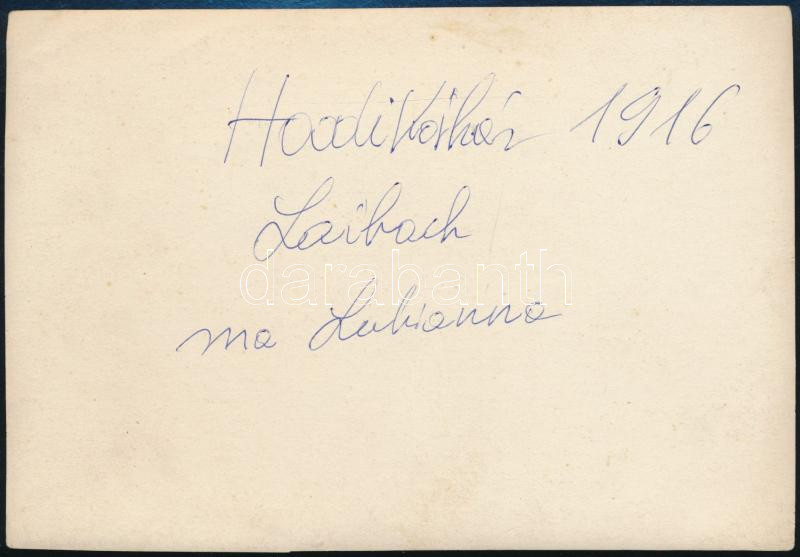 Hadikórház 1916
Laibach
darabanth
ma Lubianna